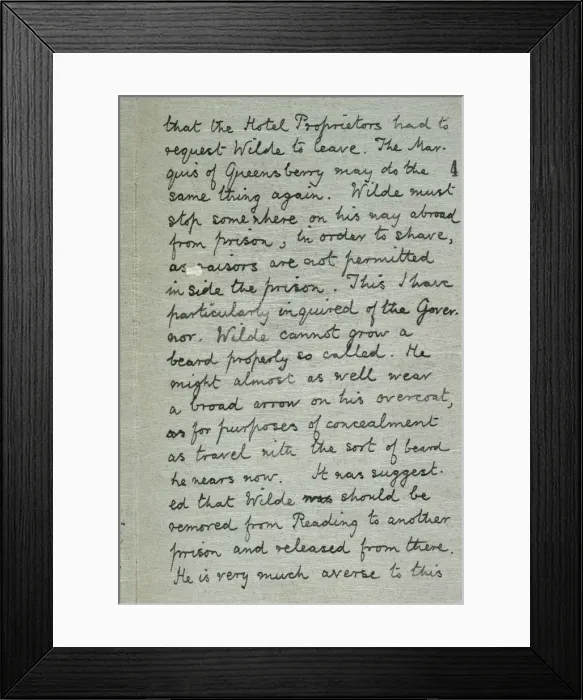 that the Hotel Proprietors had to
request Wilde to leave. The Mar-
quis of Queensberry may do the
same thing again. Wilde must
stop somewhere on his way abroad
from prison, in order to shave,
as raisors are not permitted
inside the prison. This I have
particularly inquired of the Gover-
nor. Wilde cannot grow a
beard properly so called. He
might almost as well wear
a broad arrow on his overcoat,
as for purposes of concealment
as travel with the sort of beard
he wears now. It was suggest-
ed that Wilde was should be
removed from Reading to another
prison and released from there.
He is very much averse to this